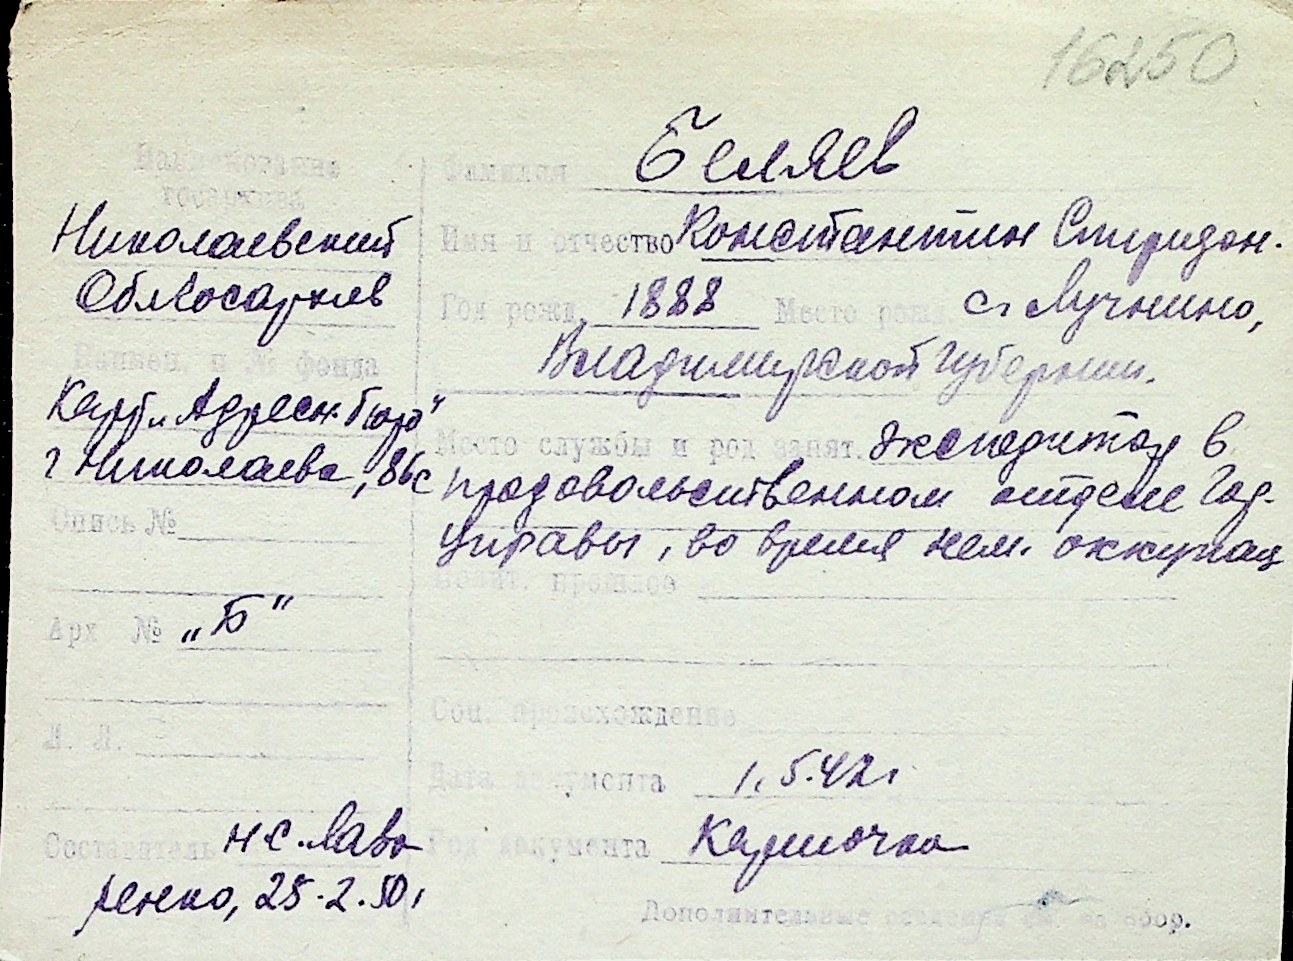 16250
Наименование
госархива
Николаевский
Облгосархив
Наимен. и № фонда
Карт. „Адресн. бюро"
г Николаева, 86с
Опись №
Арх № „Б"
Л. Л.
Составитель Н.С. Лавро
ренко, 25.2.50г
Фамилия Беляев
Имя и отчество Константин Спиридон.
Год рожд. 1888 Место рожд. с. Лучкино,
Владимирской губернии.
Место службы и род занят. экспедитор в
продовольственном отделе Гор.
управы, во время нем. оккупац
Полит. прошлое
Соц. происхождение
Дата документа 1.5.42г
Род документа Карточка
Дополнительные сведения см. на обор.